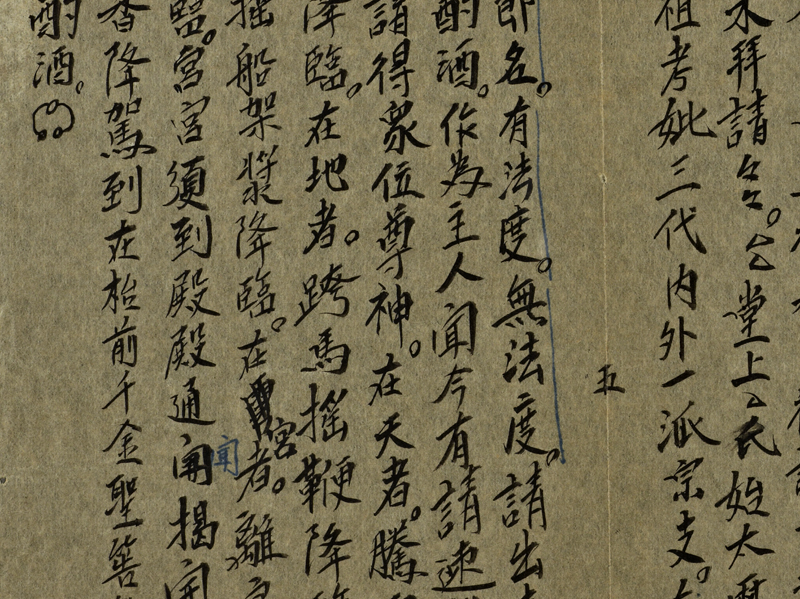 水拜請台台。台堂上上氏始太
祖考妣三代内外一派宗支。
五
郎名。有法度。無法度。請出
酌酒。作為主人聞今有請速
請得衆位尊神。在天者。騰
降臨。在地者。跨馬揺鞭降
揺船架槳降臨。在宮者。離
臨。宮宮須到殿殿通開揭開
聞
香降駕到在枱前千金聖筶
酌酒。